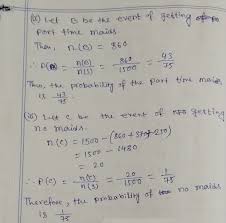 (ii) Let B be the event of getting
part time maids.
Then, n(B) = 860
∴ P(B) = n(B)/n(S) = 860/1500 = 43/75
Thus, the probability of the part time maids
is 43/75
(iii) Let C be the event of getting
no maids.
n(C) = 1500 - (860+370+250)
= 1500 - 1480
= 20
∴ P(C) = n(C)/n(S) = 20/1500 = 1/75
Therefore, the probability of no maids
is 1/75